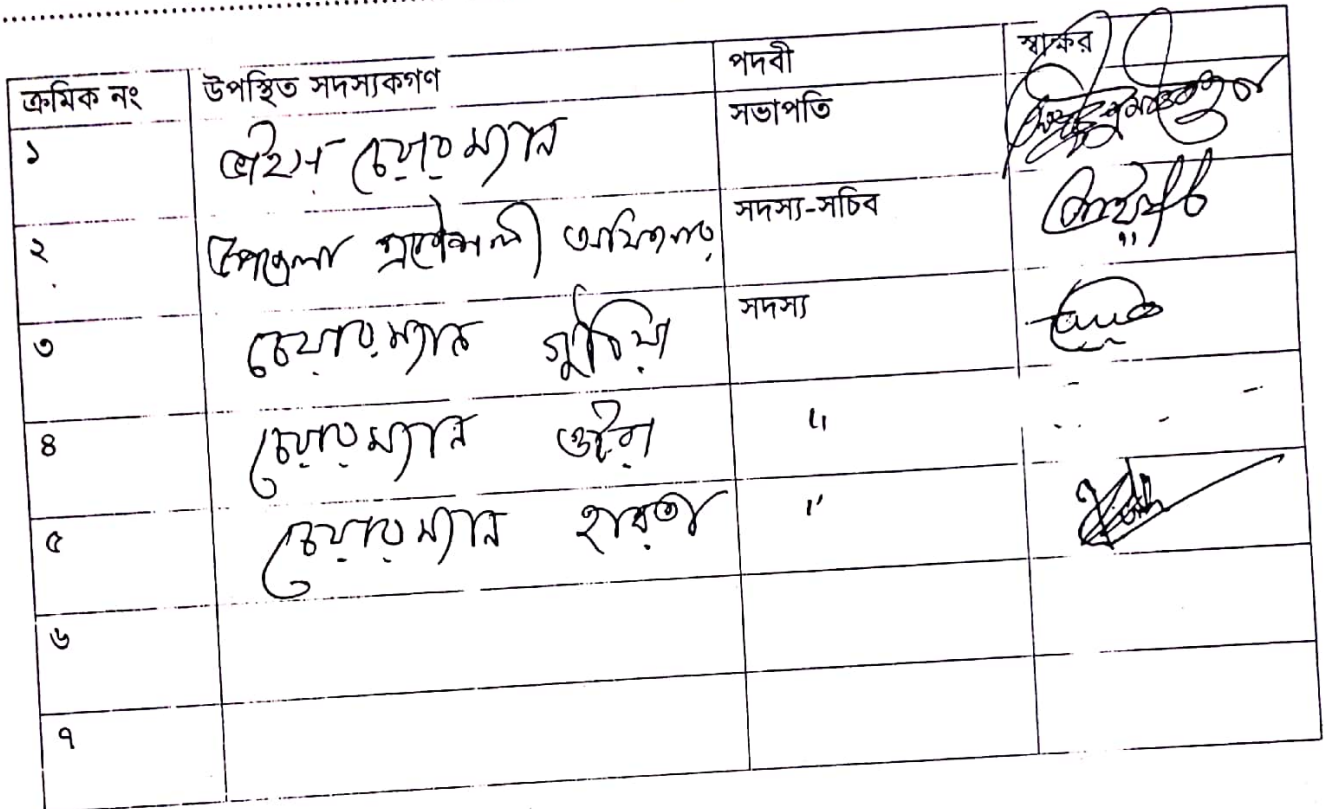 ক্রমিক নং উপস্থিত সদস্যকগণ পদবী স্বাক্ষর
১ ভাইস চেয়ারম্যান সভাপতি
২ উপজেলা প্রকৌশলী সদস্য-সচিব
৩ চেয়ারম্যান গুঠিয়া সদস্য
৪ চেয়ারম্যান ওটরা "
৫ চেয়ারম্যান হারতা "
৬
৭